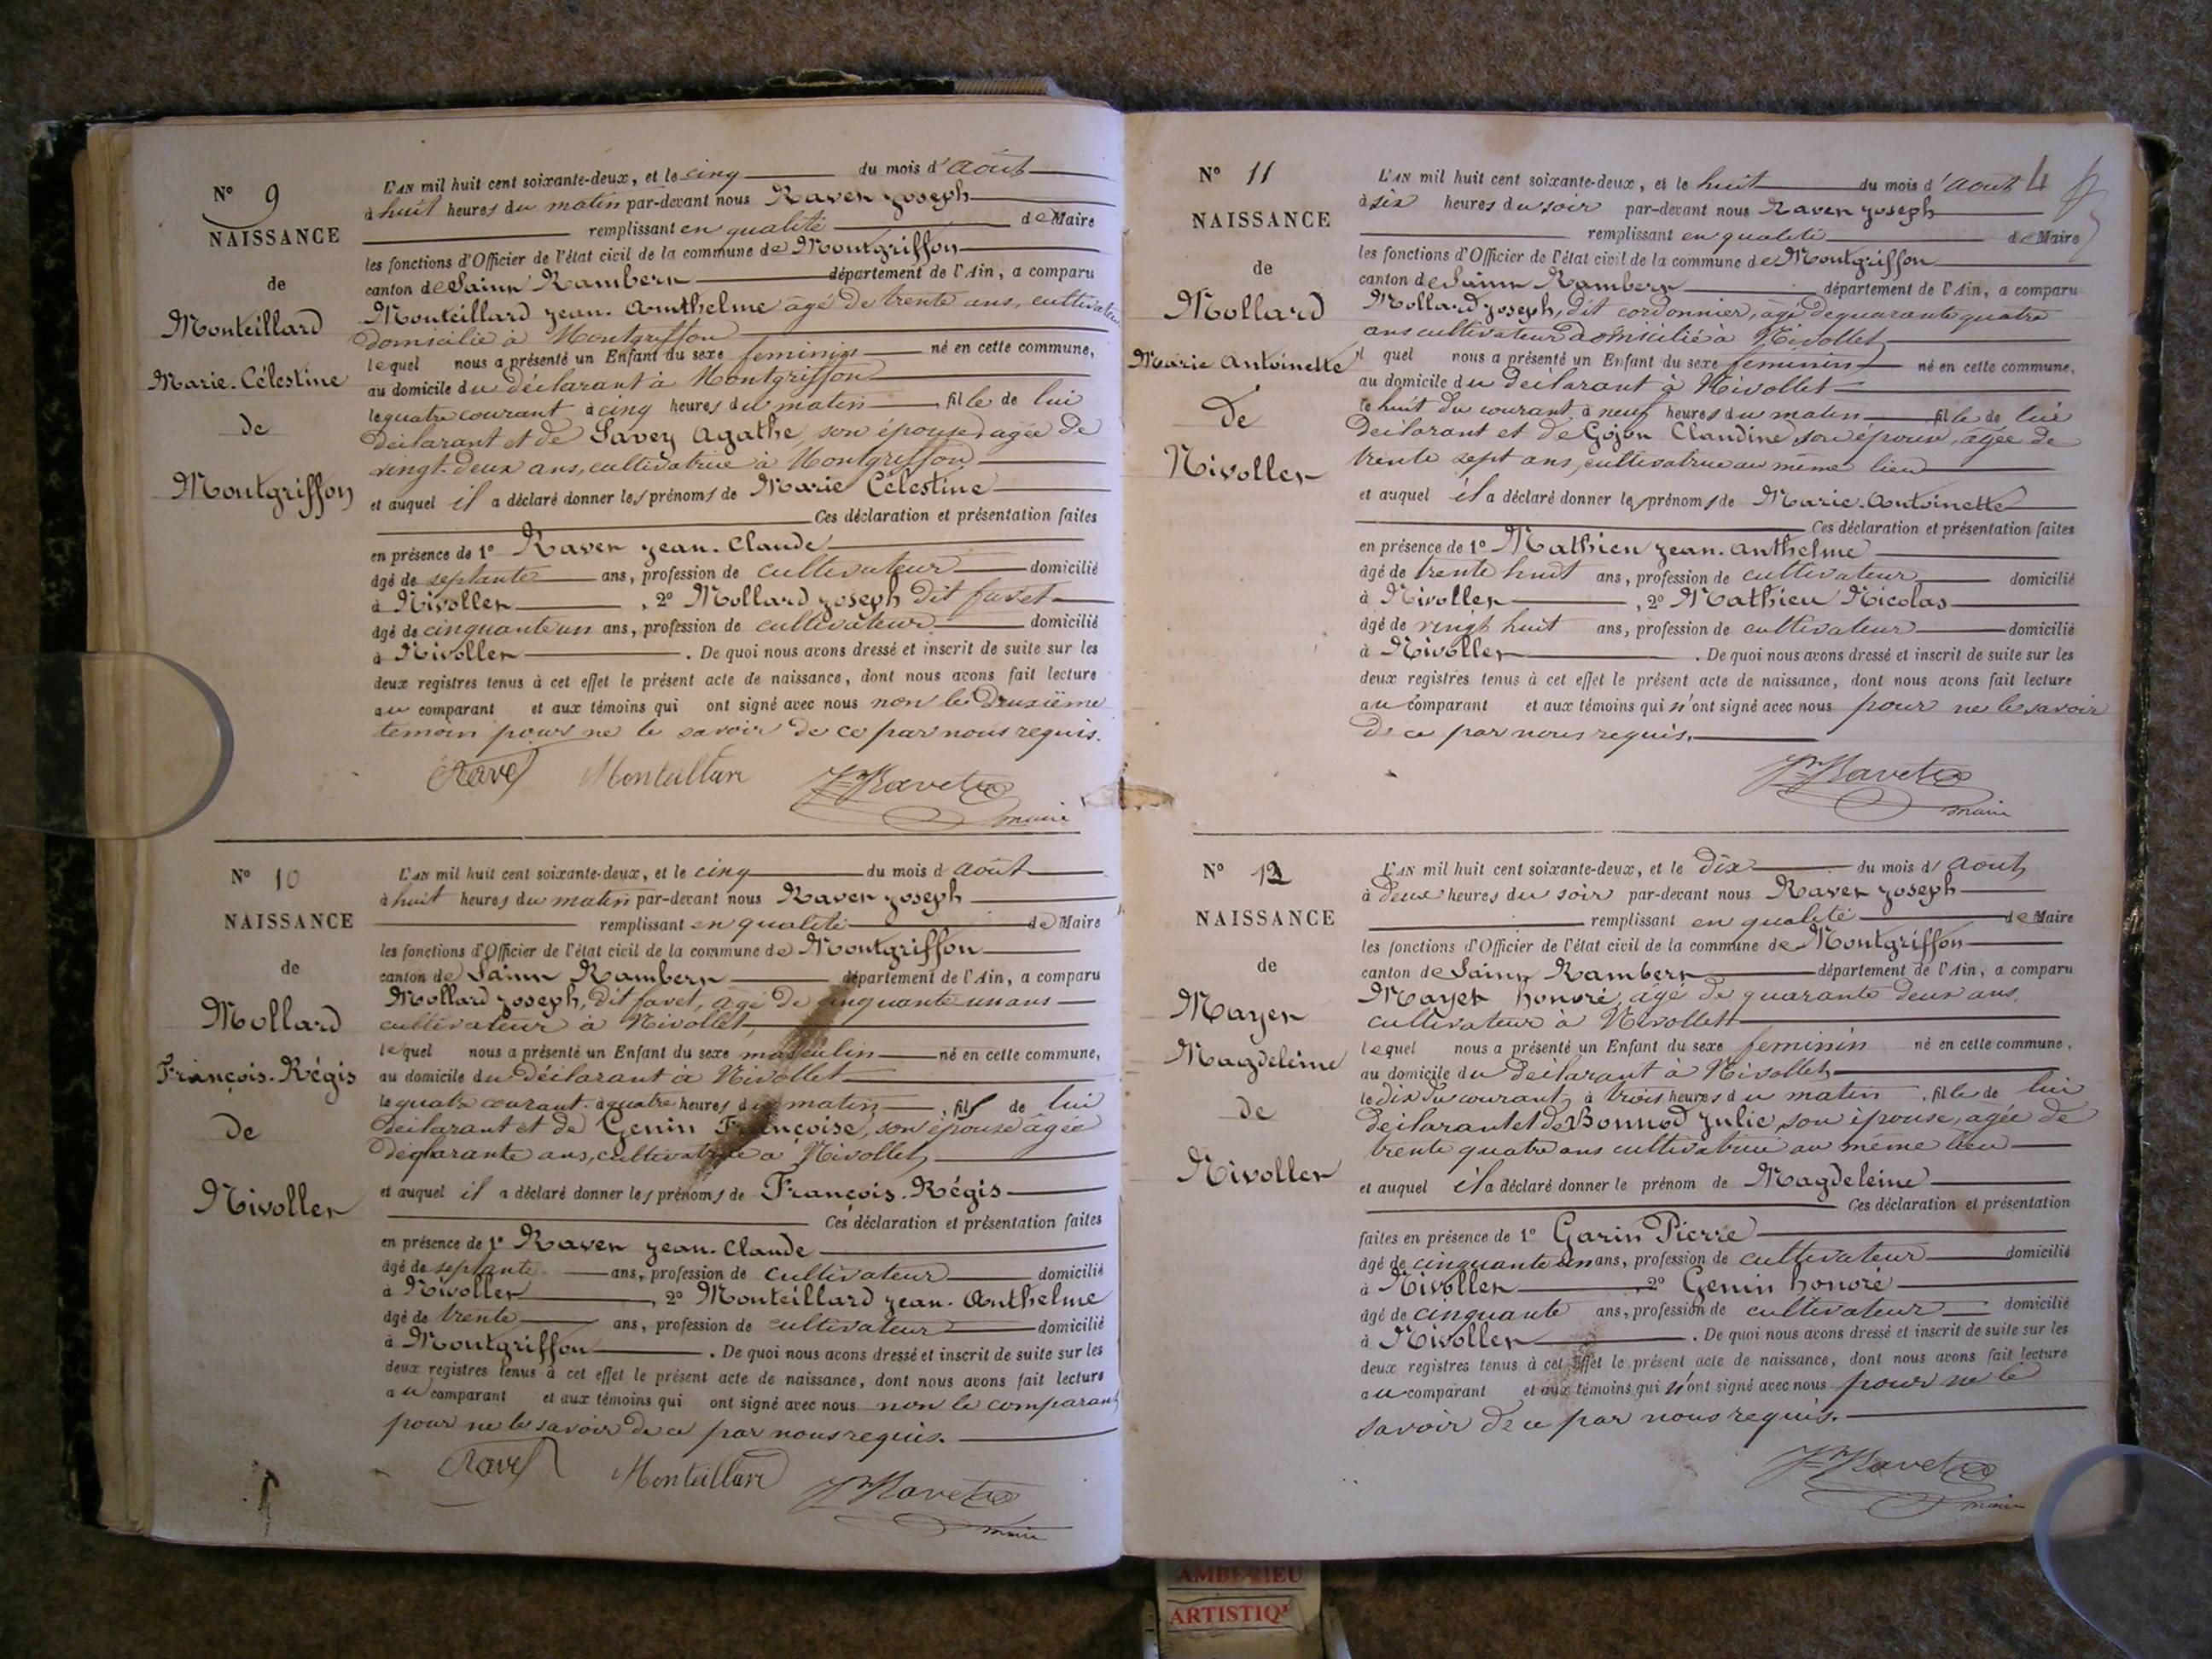 N° 9
NAISSANCE
de
Monteillard
Marie-Célestine
de
Montgriffon
L'AN mil huit cent soixante-deux, et le cinq du mois d'août
à huit heures du matin par-devant nous Ravet Joseph
remplissant en qualité de Maire
les fonctions d'Officier de l'état civil de la commune de Montgriffon
canton de Saint Rambert département de l'Ain, a comparu
Monteillard Jean-Anthelme âgé de trente ans, cultivateur
domicilié à Montgriffon
lequel nous a présenté un Enfant du sexe feminin né en cette commune,
au domicile du déclarant à Montgriffon
le quatre courant à cinq heures du matin fille de lui
déclarant et de Savey Agathe, son épouse, agée de
vingt-deux ans, cultivatrice à Montgriffon
et auquel il a déclaré donner les prénoms de Marie Célestine
Ces déclaration et présentation faites
en présence de 1° Ravet Jean-Claude
âgé de septante ans, profession de cultivateur domicilié
à Nivollet, 2° Mollard Joseph dit favet
âgé de cinquante un ans, profession de cultivateur domicilié
à Nivollet. De quoi nous avons dressé et inscrit de suite sur les
deux registres tenus à cet effet le présent acte de naissance, dont nous avons fait lecture
au comparant et aux témoins qui ont signé avec nous non le deuxième
temoin pour ne le savoir de ce par nous requis.
Ravet Monteillard Jh Ravet
maire
N° 10
NAISSANCE
de
Mollard
François-Régis
de
Nivollet
L'AN mil huit cent soixante-deux, et le cinq du mois d'août
à huit heures du matin par-devant nous Ravet Joseph
remplissant en qualité de Maire
les fonctions d'Officier de l'état civil de la commune de Montgriffon
canton de Saint Rambert département de l'Ain, a comparu
Mollard Joseph, dit favet, âgé de cinquante un ans
cultivateur à Nivollet,
lequel nous a présenté un Enfant du sexe masculin né en cette commune,
au domicile du déclarant à Nivollet
le quatre courant à quatre heures du matin, fils de lui
déclarant et de Genin Françoise, son épouse âgée
de quarante ans, cultivatrice à Nivollet,
et auquel il a déclaré donner les prénoms de François-Régis
Ces déclaration et présentation faites
en présence de 1° Ravet Jean-Claude
âgé de septante ans, profession de cultivateur domicilié
à Nivollet, 2° Monteillard Jean-Anthelme
âgé de trente ans, profession de cultivateur domicilié
à Montgriffon. De quoi nous avons dressé et inscrit de suite sur les
deux registres tenus à cet effet le présent acte de naissance, dont nous avons fait lecture
au comparant et aux témoins qui ont signé avec nous non le comparant
pour ne le savoir de ce par nous requis.
Ravet Monteillard Jh Ravet
maire
4
N° 11
NAISSANCE
de
Mollard
Marie Antoinette
De
Nivollet
L'AN mil huit cent soixante-deux, et le huit du mois d'août
à six heures du soir par-devant nous Ravet Joseph
remplissant en qualité de Maire
les fonctions d'Officier de l'état civil de la commune de Montgriffon
canton de Saint Rambert département de l'Ain, a comparu
Mollard Joseph, dit cordonnier, âgé de quarante quatre
ans cultivateur domicilié à Nivollet
lequel nous a présenté un Enfant du sexe feminin né en cette commune,
au domicile du déclarant à Nivollet
le huit du courant à neuf heures du matin fille de lui
déclarant et de Gojon Claudine son épouse, âgée de
trente sept ans, cultivatrice au même lieu
et auquel il a déclaré donner les prénoms de Marie-Antoinette
Ces déclaration et présentation faites
en présence de 1° Mathieu Jean-Anthelme
âgé de trente huit ans, profession de cultivateur domicilié
à Nivollet, 2° Mathieu Nicolas
âgé de vingt huit ans, profession de cultivateur domicilié
à Nivollet. De quoi nous avons dressé et inscrit de suite sur les
deux registres tenus à cet effet le présent acte de naissance, dont nous avons fait lecture
au comparant et aux témoins qui n'ont signé avec nous pour ne le savoir
de ce par nous requis.
Jh Ravet
maire
N° 12
NAISSANCE
de
Mayet
Magdeleine
de
Nivollet
L'AN mil huit cent soixante-deux, et le dix du mois d'août
à deux heures du soir par-devant nous Ravet Joseph
remplissant en qualité de Maire
les fonctions d'Officier de l'état civil de la commune de Montgriffon
canton de Saint Rambert département de l'Ain, a comparu
Mayet honoré, âgé de quarante deux ans,
cultivateur à Nivollet
lequel nous a présenté un Enfant du sexe feminin né en cette commune,
au domicile du déclarant à Nivollet
le dix du courant, à trois heures du matin, fille de lui
déclarant et de Bonnod Julie, son épouse, agée de
trente quatre ans cultivatrice au même lieu
et auquel il a déclaré donner le prénom de Magdeleine
Ces déclaration et présentation
faites en présence de 1° Garin Pierre
âgé de cinquante un ans, profession de cultivateur domicilié
à Nivollet 2° Genin honoré
âgé de cinquante ans, profession de cultivateur domicilié
à Nivollet. De quoi nous avons dressé et inscrit de suite sur les
deux registres tenus à cet effet le présent acte de naissance, dont nous avons fait lecture
au comparant et aux témoins qui n'ont signé avec nous pour ne le
savoir de ce par nous requis.
Jh Ravet
maire
AMBERIEU
ARTISTIQ